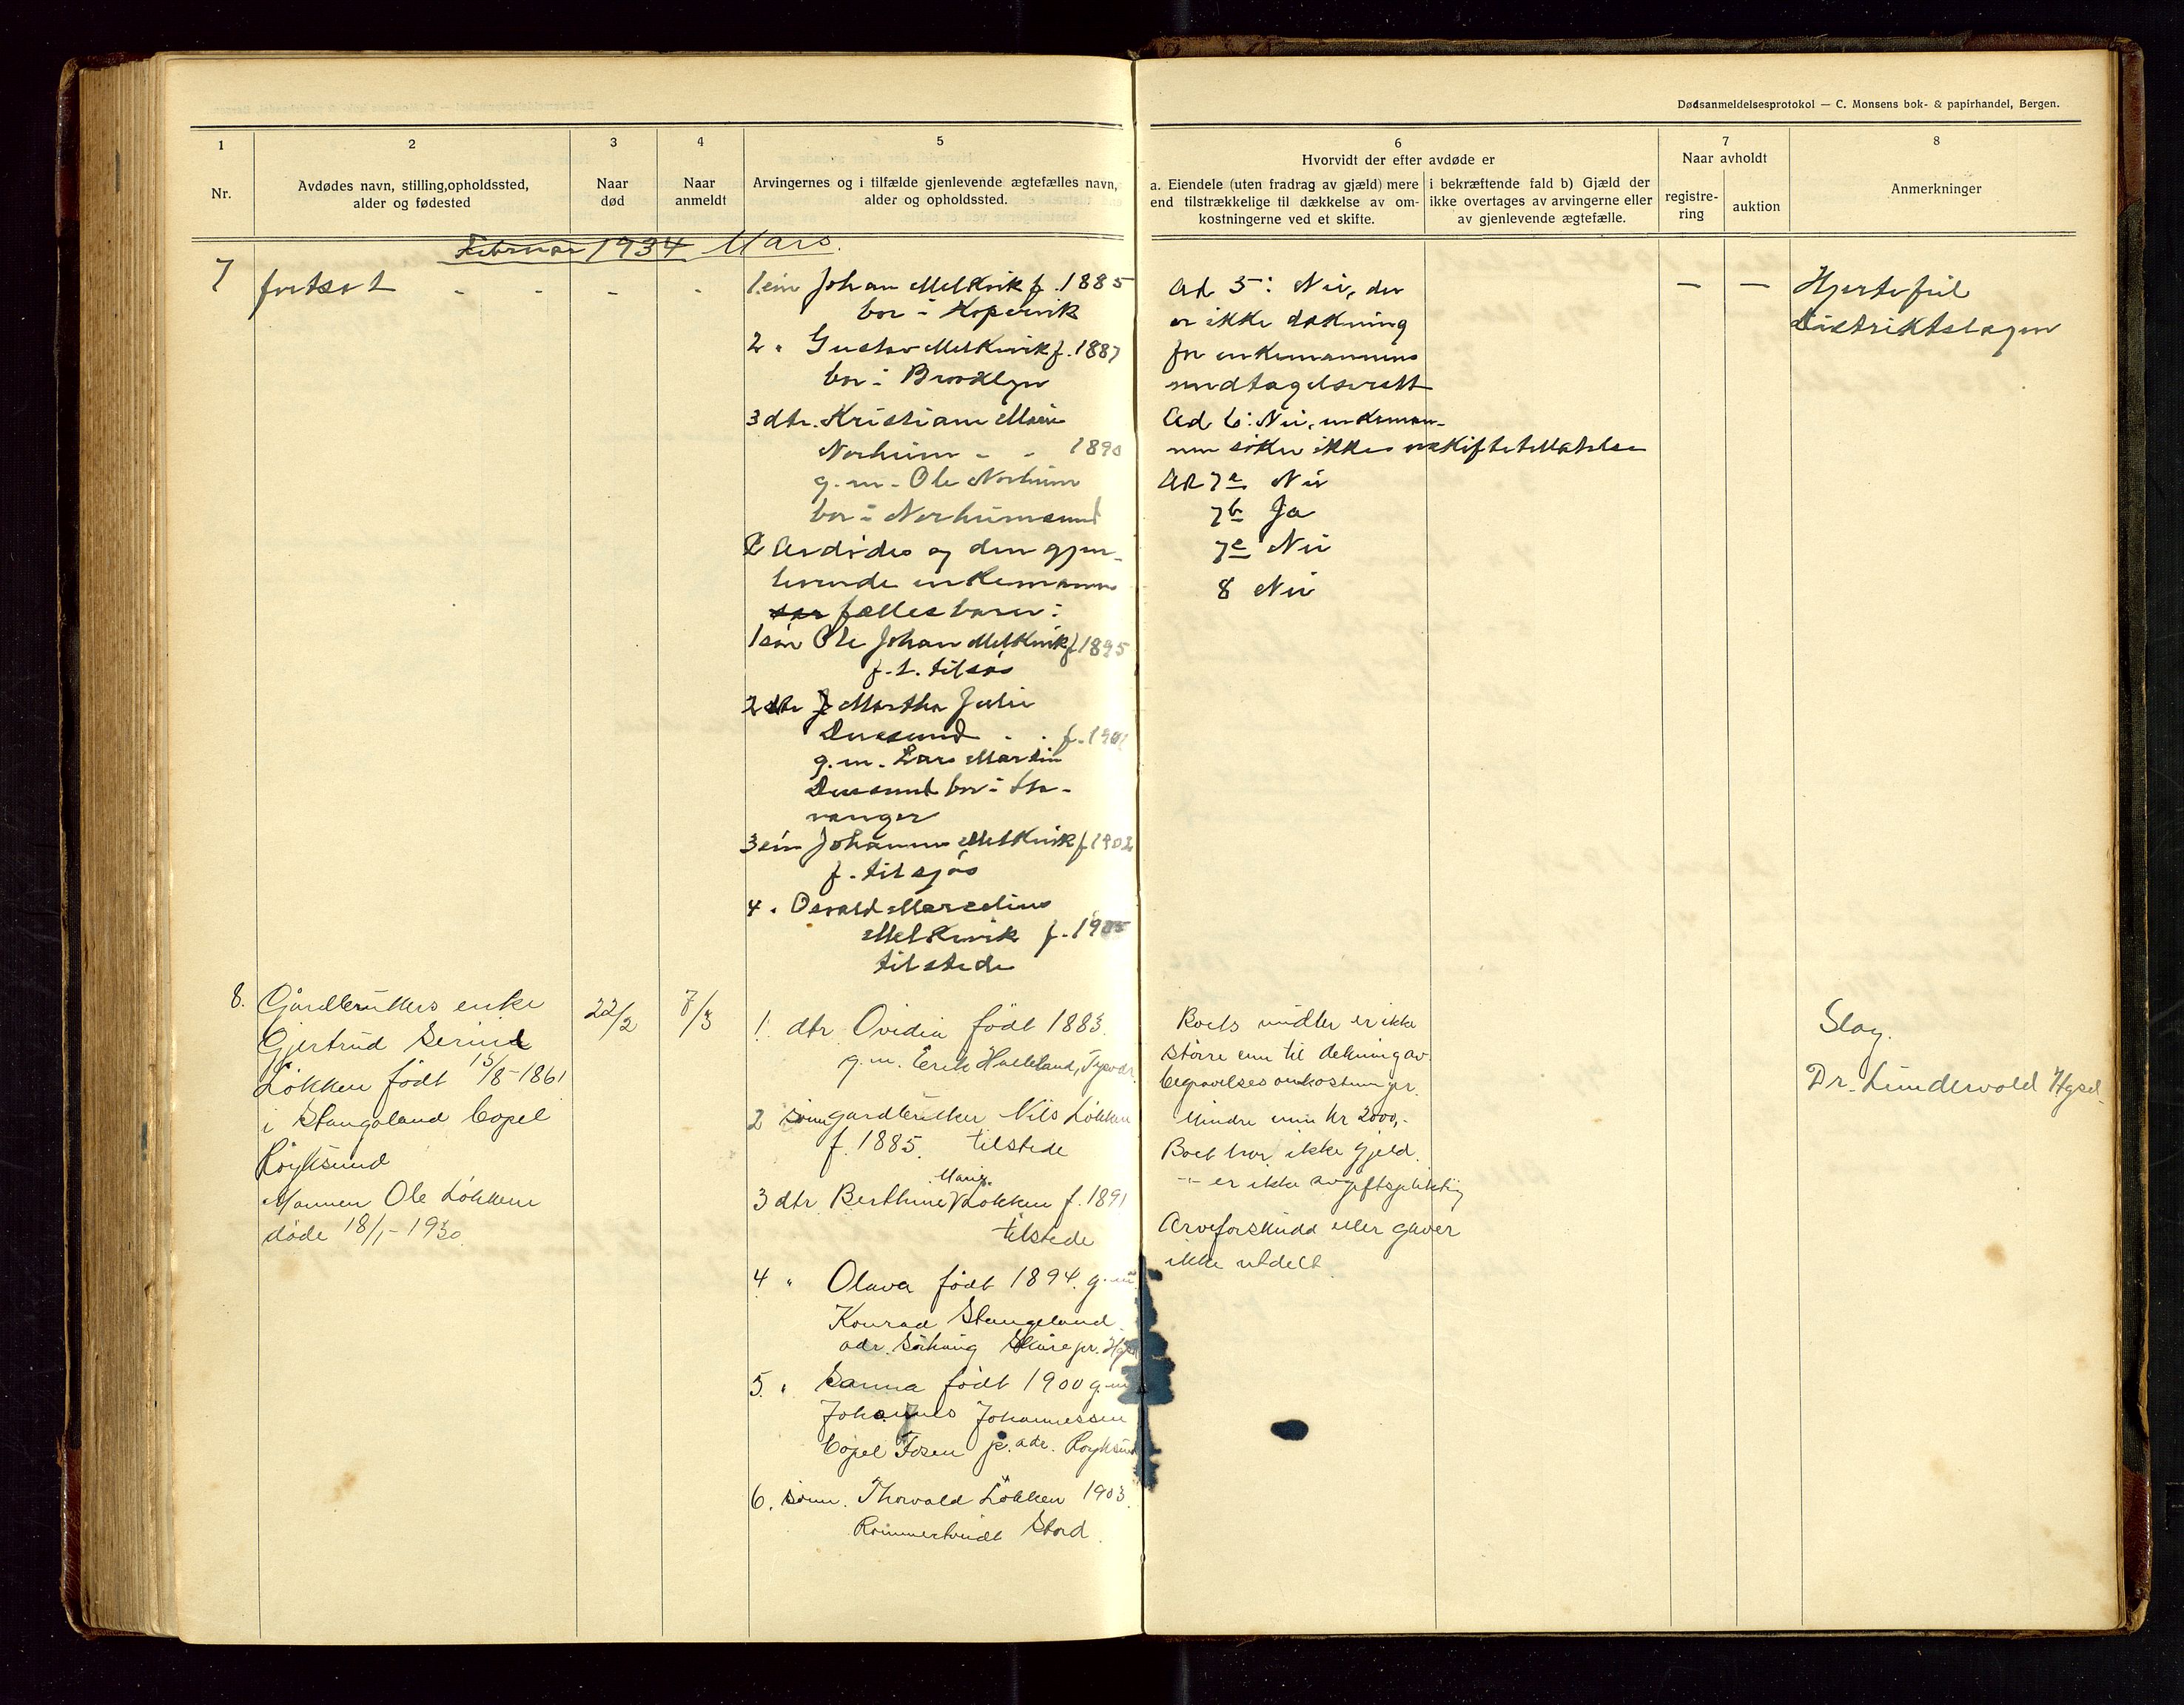 Dødsanmeldelsesprotokol — C. Monsens bok- & papirhandel, Bergen.
1
2
3
4
5
6
7
8
Nr.
Avdødes navn, stilling, opholdssted,
alder og fødested
Naar
død
Naar
anmeldt
Arvingernes og i tilfælde gjenlevende ægtefælles navn,
alder og opholdssted.
Hvorvidt der efter avdøde er
a. Eiendele (uten fradrag av gjæld) mere
end tilstrækkelige til dækkelse av om-
kostningerne ved et skifte.
i bekræftende fald b) Gjæld der
ikke overtages av arvingerne eller
av gjenlevende ægtefælle.
Naar avholdt
registre-
ring
auktion
Anmerkninger
Februar 1934 Mars.
7 fortsat - - - -
1. søn Johan Melkevik f. 1885
bor i Kopervik
2 " Gustav Melkevik f. 1887
bor i Brooklyn
3 dtr. Kristiane Marie
Norheim - - 1890
g.m. Ole Norheim
bor i Norheimsund
Avdødes og den gjen-
levende enkemanns
fællesbarn:
1 søn Ole Johan Melkevik f. 1895
f.t. tilsøs
2 dtr Martha Julie
Duesund - - f. 1901
g.m. Lars Martin
Duesund bor i Sta-
vanger
3 søn Johannes Melkevik f. 1902
f. tilsjøs
4 " Osvald Marselius
Melkevik f. 1905
tilstede
Ad 5: Nei, der
er ikke dækning
for enkemannens
undtagelsesrett
Ad 6: Nei, enkeman-
nen søker ikke uskiftetillatelse
Ad 7a Nei
7b Ja
7c Nei
8 Nei
— —
Hjertefeil
Distriktslægen
8. Gårdbrukers enke
Gjertrud Serine
Løkken født 15/8-1861
i Stangaland bopel
Røyksund
Mannen Ole Løkken
døde 18/1-1930.
22/2
7/3
1. dtr Ovidia født 1883.
g.m. Erik Halleland, Tysvær.
2 sønn gardbruker Nils Løkken
f. 1885. tilstede
3 dtr Berthine Marie Løkken f. 1891
tilstede
4 " Olava født 1894. g.m.
Konrad Stangeland
adr. Solhaug Skåre pr. Hgsd
5. " Sanna født 1900 g.m.
Johannes Johannessen
bopel Fosen p. adr. Røyksund
6. sønn. Thorvald Løkken 1903.
Rommertveidt Stord.
Boets midler er ikke
større enn til dekning av
begravelsesomkostninger.
Mindre enn kr 2000,-
Boet har ikke gjeld.
-"- er ikke avgiftspliktig
Arveforskudd eller gaver
ikke utdelt.
Slag.
Dr. Lundervold Hgsd.